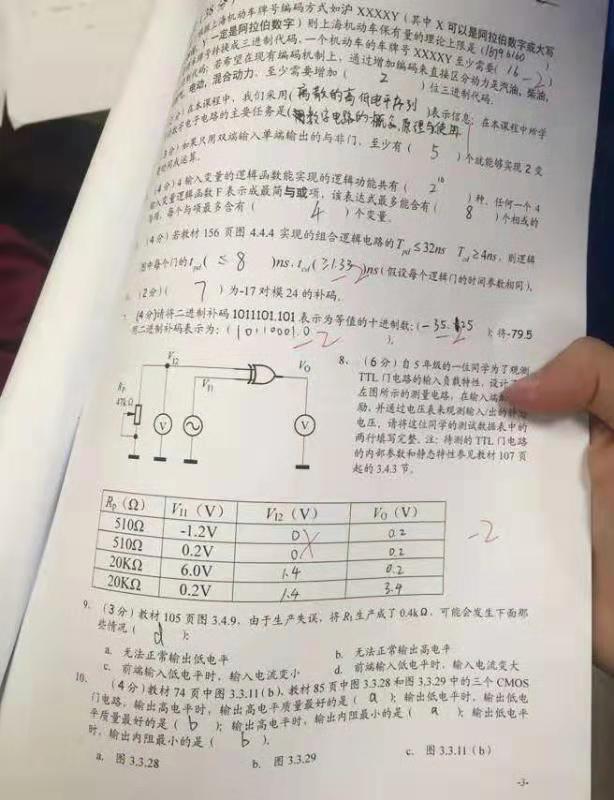 8 分)
上海机动车牌号编码方式如沪 XXXXY (其中 X 可以是阿拉伯数字或大写
Y 一定是阿拉伯数字) 则上海机动车保有量的理论上限是 (
转换成三进制代码, 一个机动车的车牌号 XXXXY 至少需要( 16 -2 )
若希望在现有编码机制上, 通过增加编码来直接区分动力是汽油, 柴油,
电动, 混合动力, 至少需要增加 ( 2 ) 位三进制代码.
分) 在本课程中, 我们采用( 离散的高低电平序列 )表示信息; 在本课程中所学
数字电子电路的主要任务是( 数字电路的概念原理与使用
分) 如果只用双端输入单端输出的与非门, 至少有 ( 5 ) 个就能够实现 2 变
运算.
(4分) 4 输入变量的逻辑函数能实现的逻辑功能共有 ( ) 种, 任何一个 4
输入变量逻辑函数 F 表示成最简与或项, 该表达式最多能含有 ( 8 ) 个相或的
与项, 每个与项最多含有 ( 4 ) 个变量.
(4分) 若教材 156 页图 4.4.4 实现的组合逻辑电路的 Tpd ≤32ns Tcd ≥4ns, 则逻辑
图中每个门的tpd ( ≤ 8 )ns, tcd ( ≥1.33 -2 )ns (假设每个逻辑门的时间参数相同).
(2分) ( 7 ) 为-17 对模 24 的补码.
7. (4分)请将二进制补码 1011101.101 表示为等值的十进制数: ( -2 ); 得-79.5
用二进制补码表示为: ( 10110001.0 -2 ).
VI2
VI1
VO
RP
47kΩ
V
V
8. (6分) 自 5 年级的一位同学为了观测
TTL 门电路的输入负载特性, 设计了
左图所示的测量电路, 在输入端
励, 并通过电压表来观测输入/出的
电压, 请将这位同学的测试数据表中的
两行填写完整. 注: 待测的 TTL 门电路
的内部参数和静态特性参见教材 107 页
起的 3.4.3 节.
RP (Ω) VI1 (V) VI2 (V) VO (V)
510Ω -1.2V 0 0.2
510Ω 0.2V 0 0.2
20KΩ 6.0V 1.4 0.2
20KΩ 0.2V 1.4 3.4
-2
9. (3分) 教材 105 页图 3.4.9, 由于生产失误, 将 R1 生产成了 0.4kΩ, 可能会发生下面那
些情况 ( d );
a. 无法正常输出低电平 b. 无法正常输出高电平
c. 前端输入低电平时, 输入电流变小 d. 前端输入低电平时, 输入电流变大
10. (4分) 教材 74 页中图 3.3.11 (b), 教材 85 页中图 3.3.28 和图 3.3.29 中的三个 CMOS
门电路, 输出高电平时, 输出高电平质量最好的是 ( a ); 输出低电平时, 输出低电
平质量最好的是 ( b ); 输出高电平时, 输出内阻最小的是 ( a ); 输出低电平
时, 输出内阻最小的是 ( b ).
a. 图 3.3.28 b. 图 3.3.29 c. 图 3.3.11 (b)
-3-